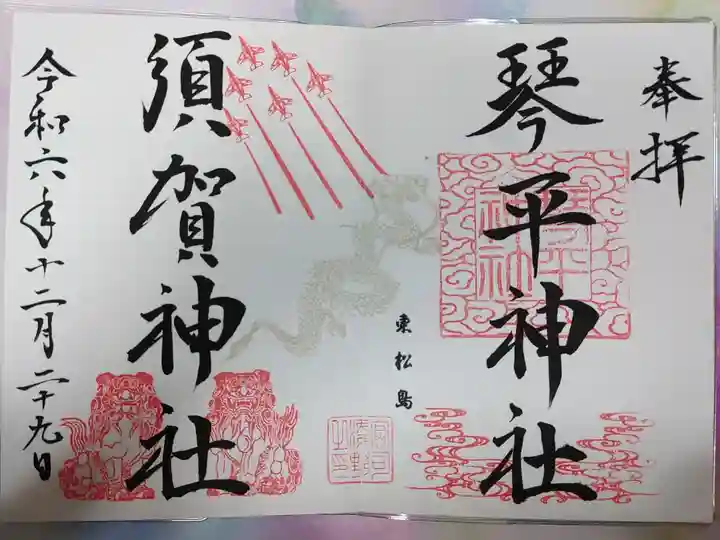 奉拝
琴平神社
東松島
須賀神社
令和六年十二月二十九日
琴平
神社